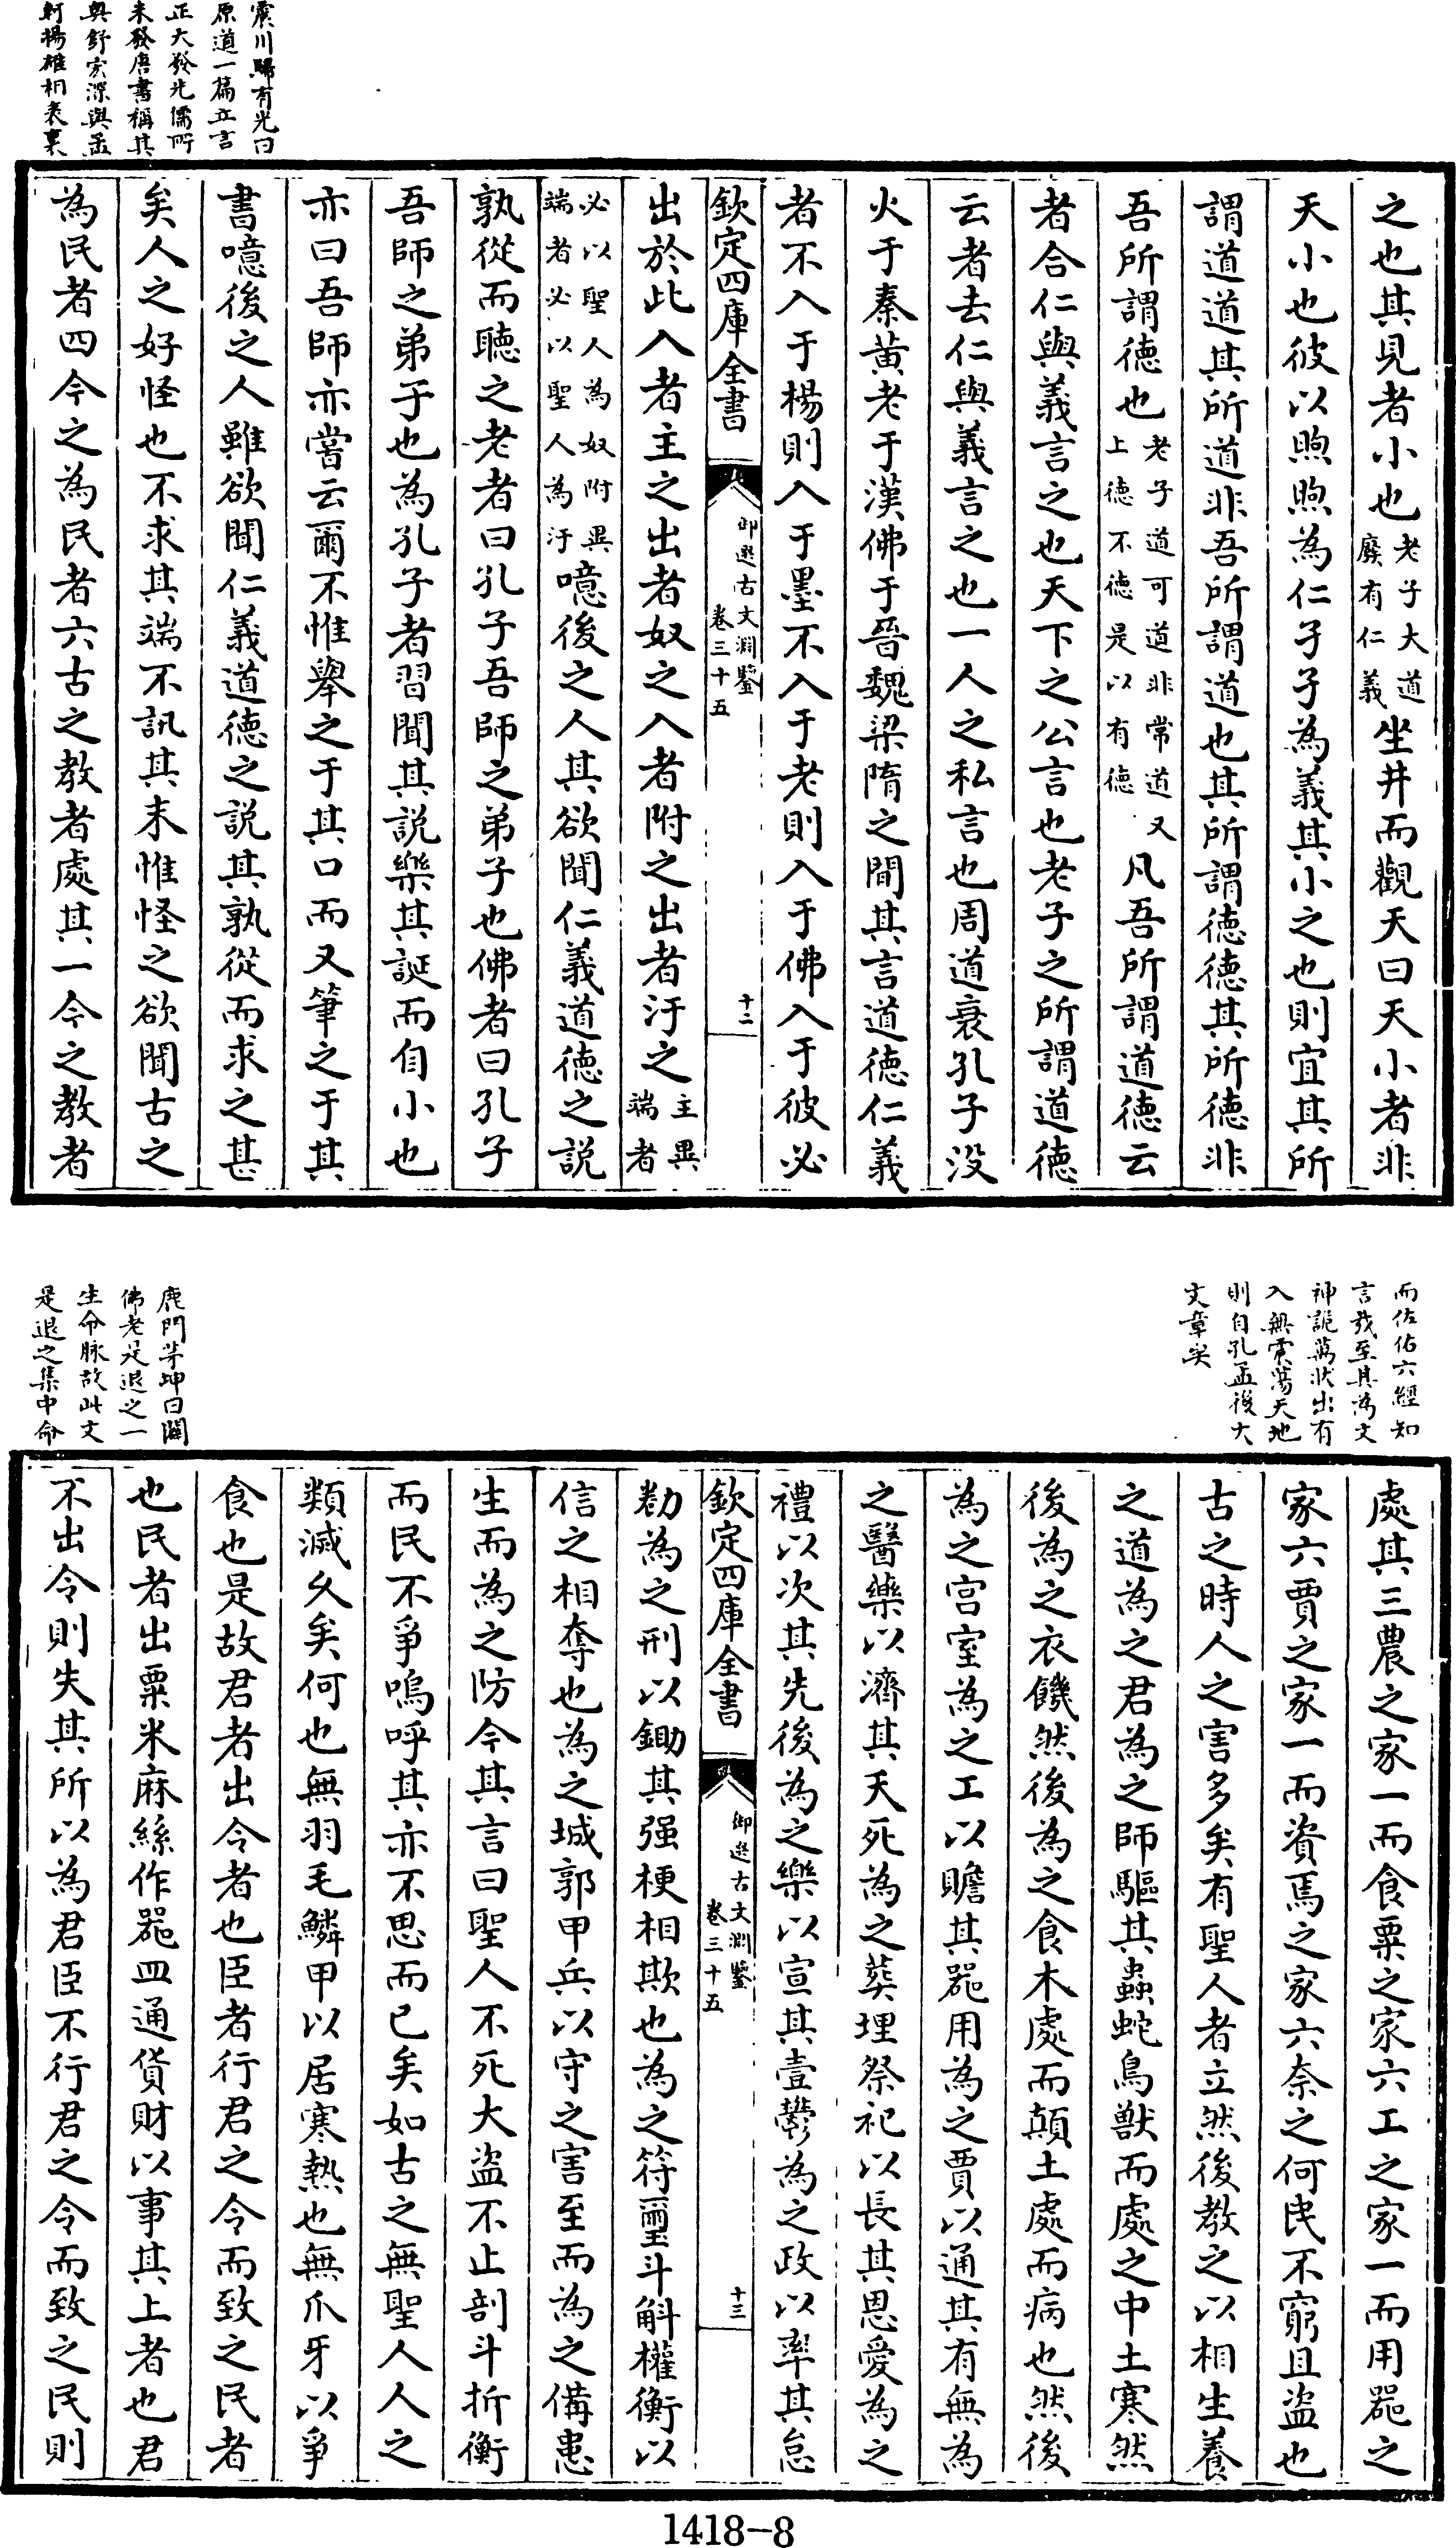 震川歸有光曰
原道一篇立言
正大發先儒所
未發唐書稱其
奧舒宏深與孟
軻揚雄相表裏
之也其見者小也老子大道廢有仁義坐井而觀天曰天小者非
天小也彼以煦煦為仁孑孑為義其小之也則宜其所
謂道道其所道非吾所謂道也其所謂徳徳其所徳非
吾所謂徳也老子道可道非常道又上徳不徳是以有徳凡吾所謂道徳云
者合仁與義言之也天下之公言也老子之所謂道徳
云者去仁與義言之也一人之私言也周道衰孔子没
火于秦黄老于漢佛于晉魏梁隋之間其言道徳仁義
者不入于楊則入于墨不入于老則入于佛入于彼必
欽定四庫全書
御選古文淵鑒
卷三十五
十二
出於此入者主之出者奴之入者附之出者汙之主異端者
必以聖人為奴附異端者必以聖人為汙噫後之人其欲聞仁義道徳之説
孰從而聽之老者曰孔子吾師之弟子也佛者曰孔子
吾師之弟子也為孔子者習聞其説樂其誕而自小也
亦曰吾師亦嘗云爾不惟舉之于其口而又筆之于其
書噫後之人雖欲聞仁義道徳之説其孰從而求之甚
矣人之好怪也不求其端不訊其末惟怪之欲聞古之
為民者四今之為民者六古之教者處其一今之教者
而佐佑六經知
言哉至其為文
神詭萬狀出有
入無震蕩天地
則自孔孟後大
文章矣
處其三農之家一而食粟之家六工之家一而用噐之
家六賈之家一而資焉之家六奈之何民不窮且盗也
古之時人之害多矣有聖人者立然後教之以相生養
之道為之君為之師驅其蟲蛇鳥獸而處之中土寒然
後為之衣饑然後為之食木處而顛土處而病也然後
為之宫室為之工以贍其噐用為之賈以通其有無為
之醫藥以濟其夭死為之葬埋祭祀以長其恩愛為之
禮以次其先後為之樂以宣其壹鬱為之政以率其怠
欽定四庫全書
御選古文淵鑒
卷三十五
十三
勌為之刑以鋤其强梗相欺也為之符璽斗斛權衡以
信之相奪也為之城郭甲兵以守之害至而為之備患
生而為之防今其言曰聖人不死大盗不止剖斗折衡
而民不爭嗚呼其亦不思而已矣如古之無聖人人之
類滅久矣何也無羽毛鱗甲以居寒熱也無爪牙以爭
食也是故君者出令者也臣者行君之令而致之民者
也民者出粟米麻絲作噐皿通貨財以事其上者也君
不出令則失其所以為君臣不行君之令而致之民則
鹿門茅坤曰闢
佛老是退之一
生命脉故此文
是退之集中命
1418-8